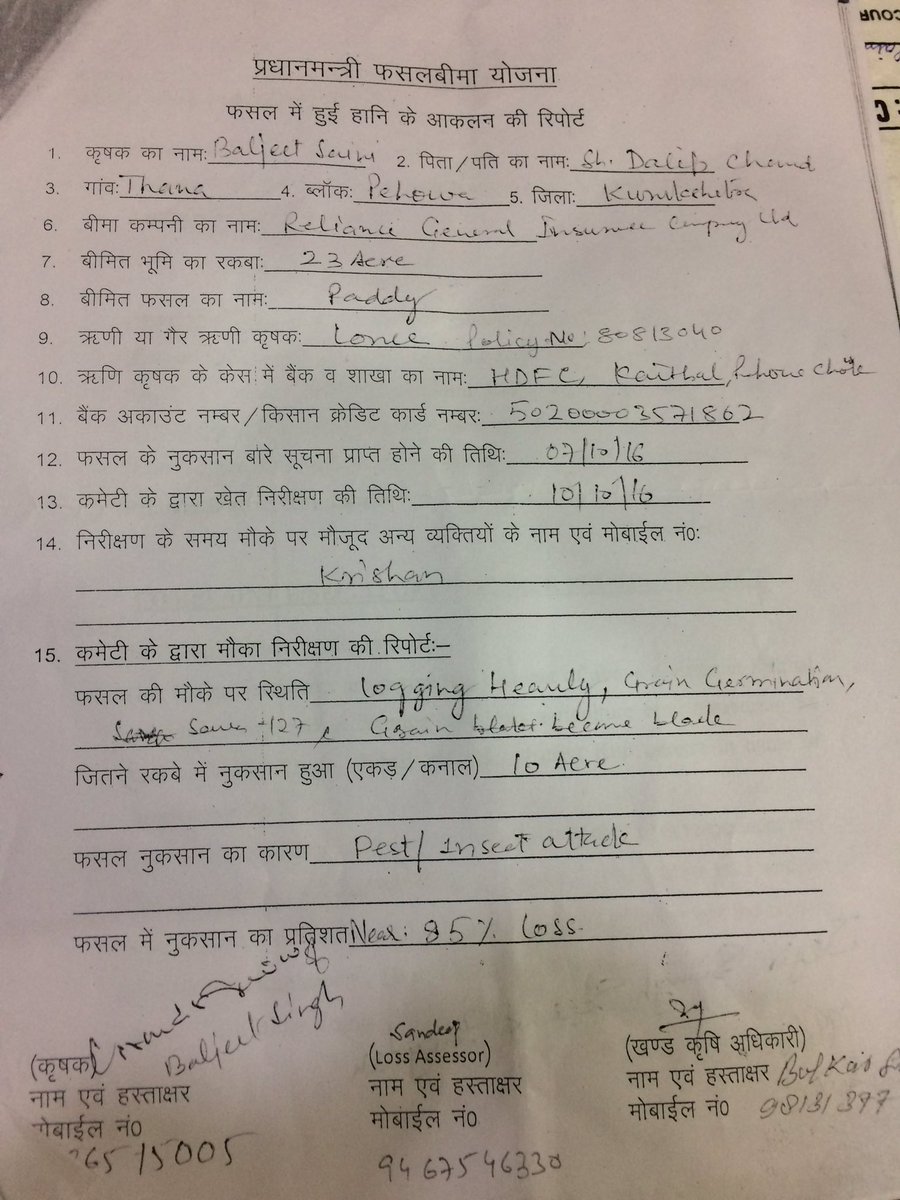 COUR
प्रधानमन्त्री फसलबीमा योजना
फसल में हुई हानि के आकलन की रिपोर्ट
1. कृषक का नामः Baljeet Saini 2. पिता/पति का नामः Sh. Dalip Chand
3. गांवः Thana 4. ब्लॉकः Pehowa 5. जिलाः Kurukshetra
6. बीमा कम्पनी का नामः Reliance General Insurance Company Ltd
7. बीमित भूमि का रकबाः 23 Acre
8. बीमित फसल का नामः Paddy
9. ऋणी या गैर ऋणी कृषकः Lonee Policy No: 80813040
10. ऋणि कृषक के केस में बैंक व शाखा का नामः HDFC, Kaithal,
11. बैंक अकाउंट नम्बर/किसान क्रेडिट कार्ड नम्बरः 50200003571862
12. फसल के नुकसान बारे सूचना प्राप्त होने की तिथिः 07/10/16
13. कमेटी के द्वारा खेत निरीक्षण की तिथिः 10/10/16
14. निरीक्षण के समय मौके पर मौजूद अन्य व्यक्तियों के नाम एवं मोबाईल नं0ः
Krishan
15. कमेटी के द्वारा मौका निरीक्षण की रिपोर्टः–
फसल की मौके पर स्थिति Logging Heavily, Grain Germination,
Grain become
जितने रकबे में नुकसान हुआ (एकड़/कनाल) 10 Acre.
फसल नुकसान का कारण Pest/Insect attack
फसल में नुकसान का प्रतिशत Near: 85% Loss.
Baljeet Singh
Sandeep
(कृषक)
(Loss Assessor)
(खण्ड कृषि अधिकारी)
नाम एवं हस्ताक्षर
नाम एवं हस्ताक्षर
नाम एवं हस्ताक्षर
मोबाईल नं0
मोबाईल नं0
मोबाईल नं0 98131397
6515005
9467546330